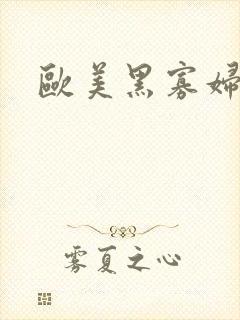 歐美黑寡婦
雾夏之心